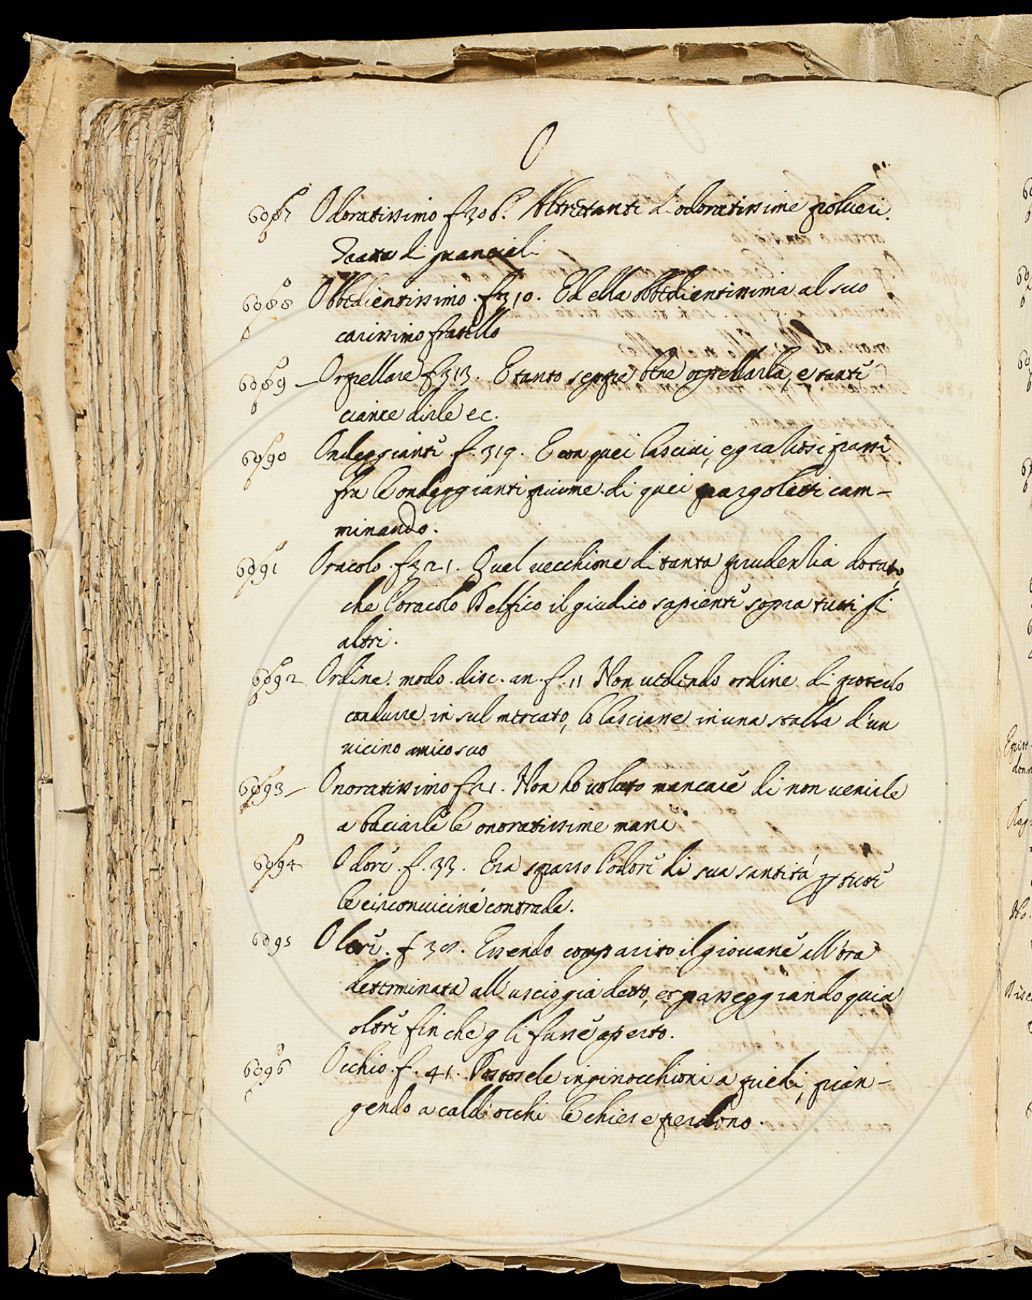 O
6087 Odoratissimo f. 306. Altretanti d'odoratissime polueri.
di
6088 Obbedientissimo. f. 310. Ed ella obbedientissima al suo
carissimo fratello
6089 Orpellare f. 313. E tanto seppe bene orpellarla, e tante
ciance dirle ec.
6090 Ondeggiante f. 319. E con quei lasciui, e gratiosi passi
fra le ondeggianti piume di quei pargoletti cam-
minando.
6091 Oracolo. f. 321. Quel vecchione di tanta prudentia dotato,
che l'oracolo Delfico il giudico sapiente sopra tutti gli
altri.
6092 Ordine. modo. disc. an. f. 11 Non uedendo ordine di poterlo
condurre in sul mercato, lo lasciaue in una stalla d'un
uicino amico suo
6093 Onoratissimo f. 21. Non ho voluto mancare di non uenirle
a baciarle le onoratissime mani
6094 Odore. f. 33. Era sparso l'odore di sua santità p tutte
le circonuicine contrade.
6095 Oltre. f. 38. Essendo comparito il giouane all'ora
determinata all'uscio già detto, et passeggiando quiui
oltre finche gli fusse aperto.
6096 Occhio. f. 41. Postosele inginocchioni a piedi, pian-
gendo a cald'occhi le chiese perdono.